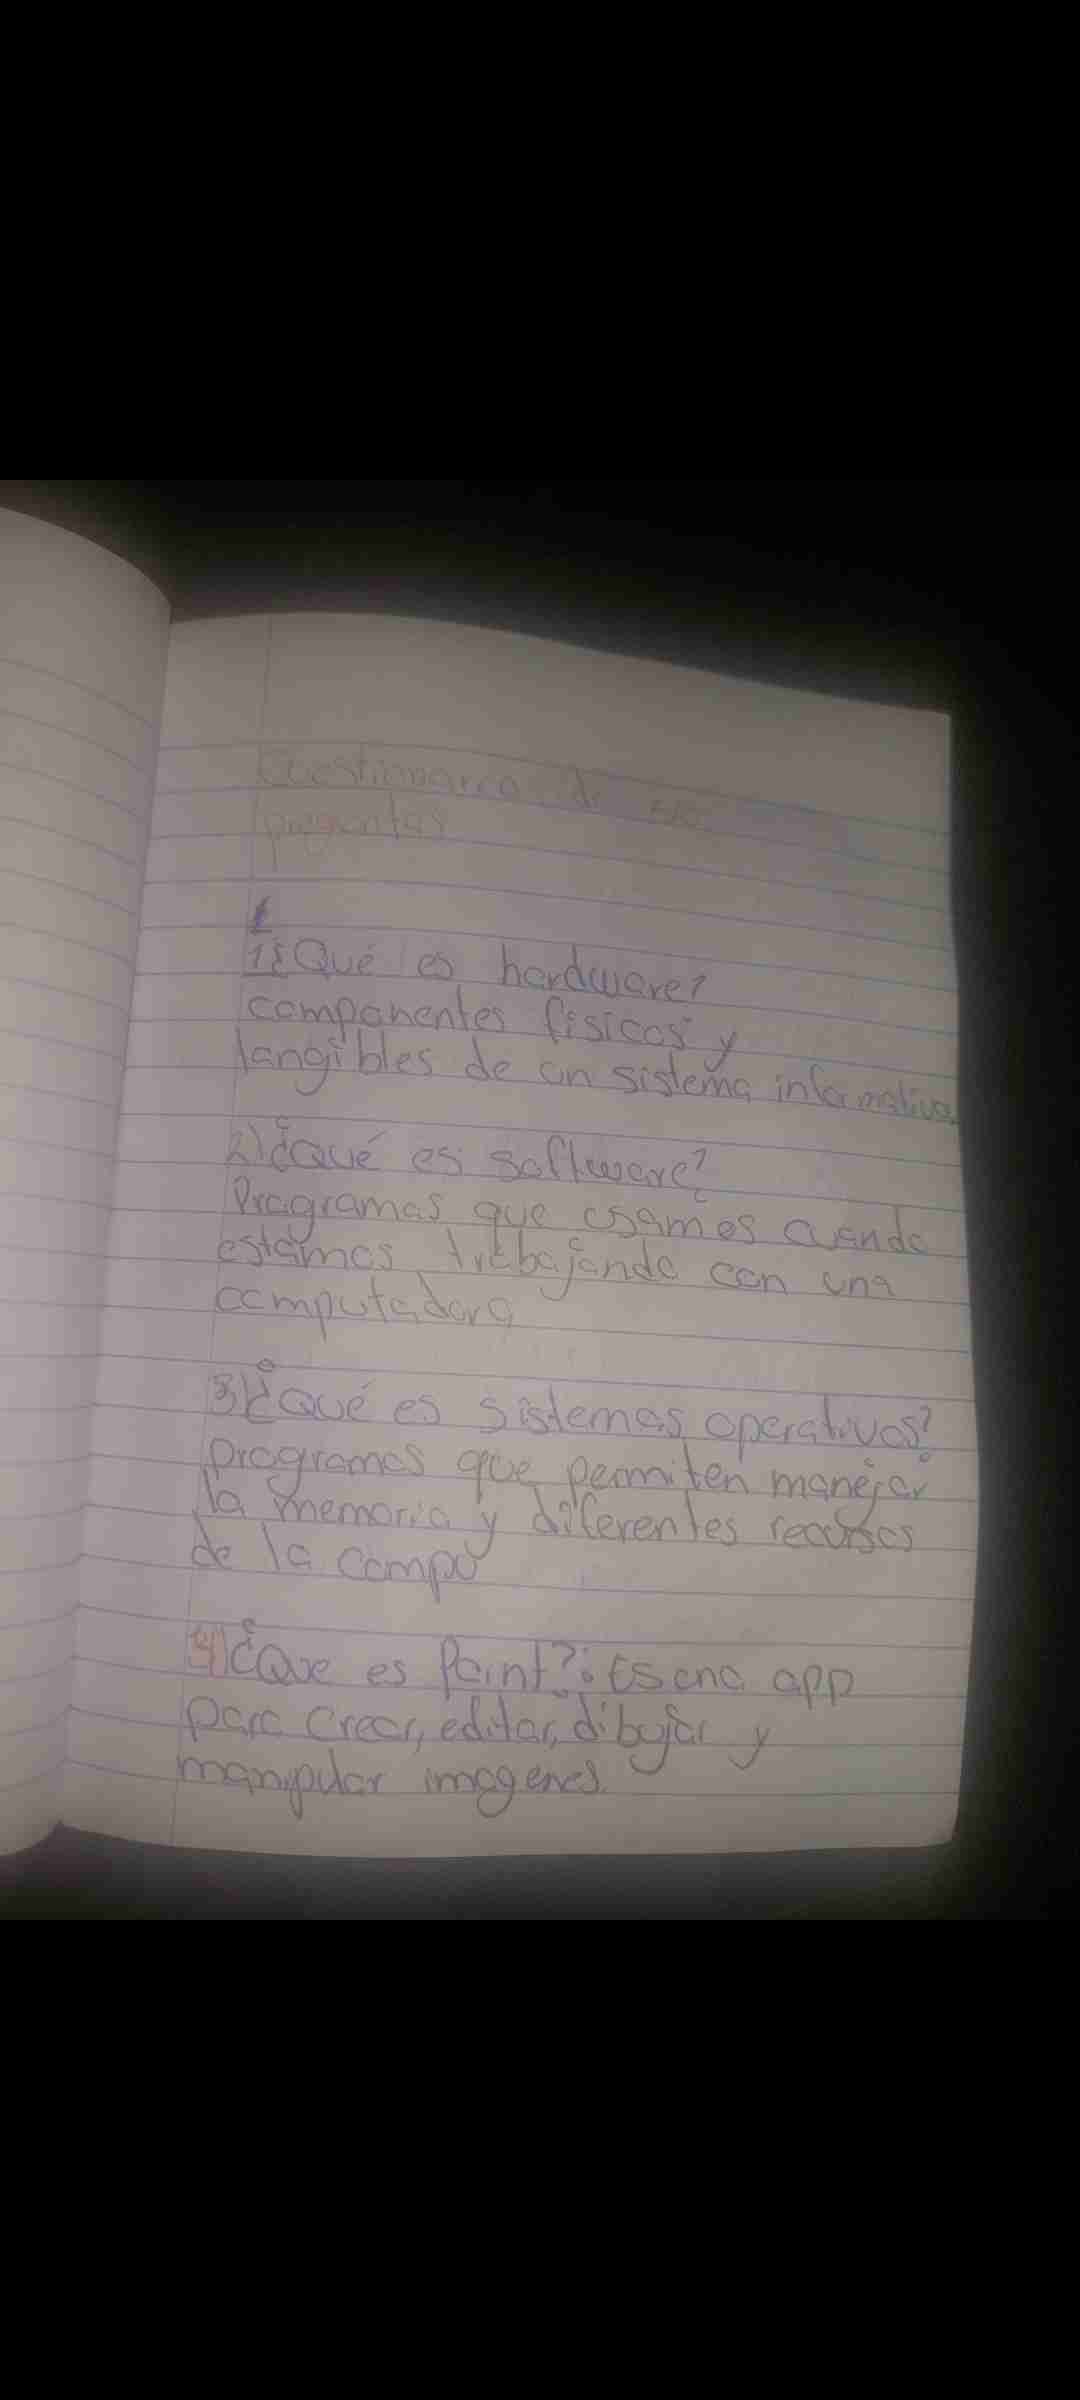 Cuestionario de
preguntas
1¿Qué es hardware?
componentes físicos y
tangibles de un sistema informativo.
2)¿Qué es software?
Programas que usamos cuando
estamos trabajando con una
computadora
3)¿Qué es sistemas operativos?
programas que permiten manejar
la memoria y diferentes recursos
de la compu
4)¿Que es Paint?: Es una app
para crear, editar, dibujar y
manipular imagenes.